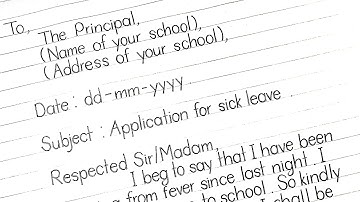 To,
The Principal,
(Name of your school),
(Address of your school),
Date : dd-mm-yyyy
Subject : Application for sick leave .
Respected Sir/Madam,
I beg to say that I have been
from fever since last night . I
to school . So kindly
I shall be